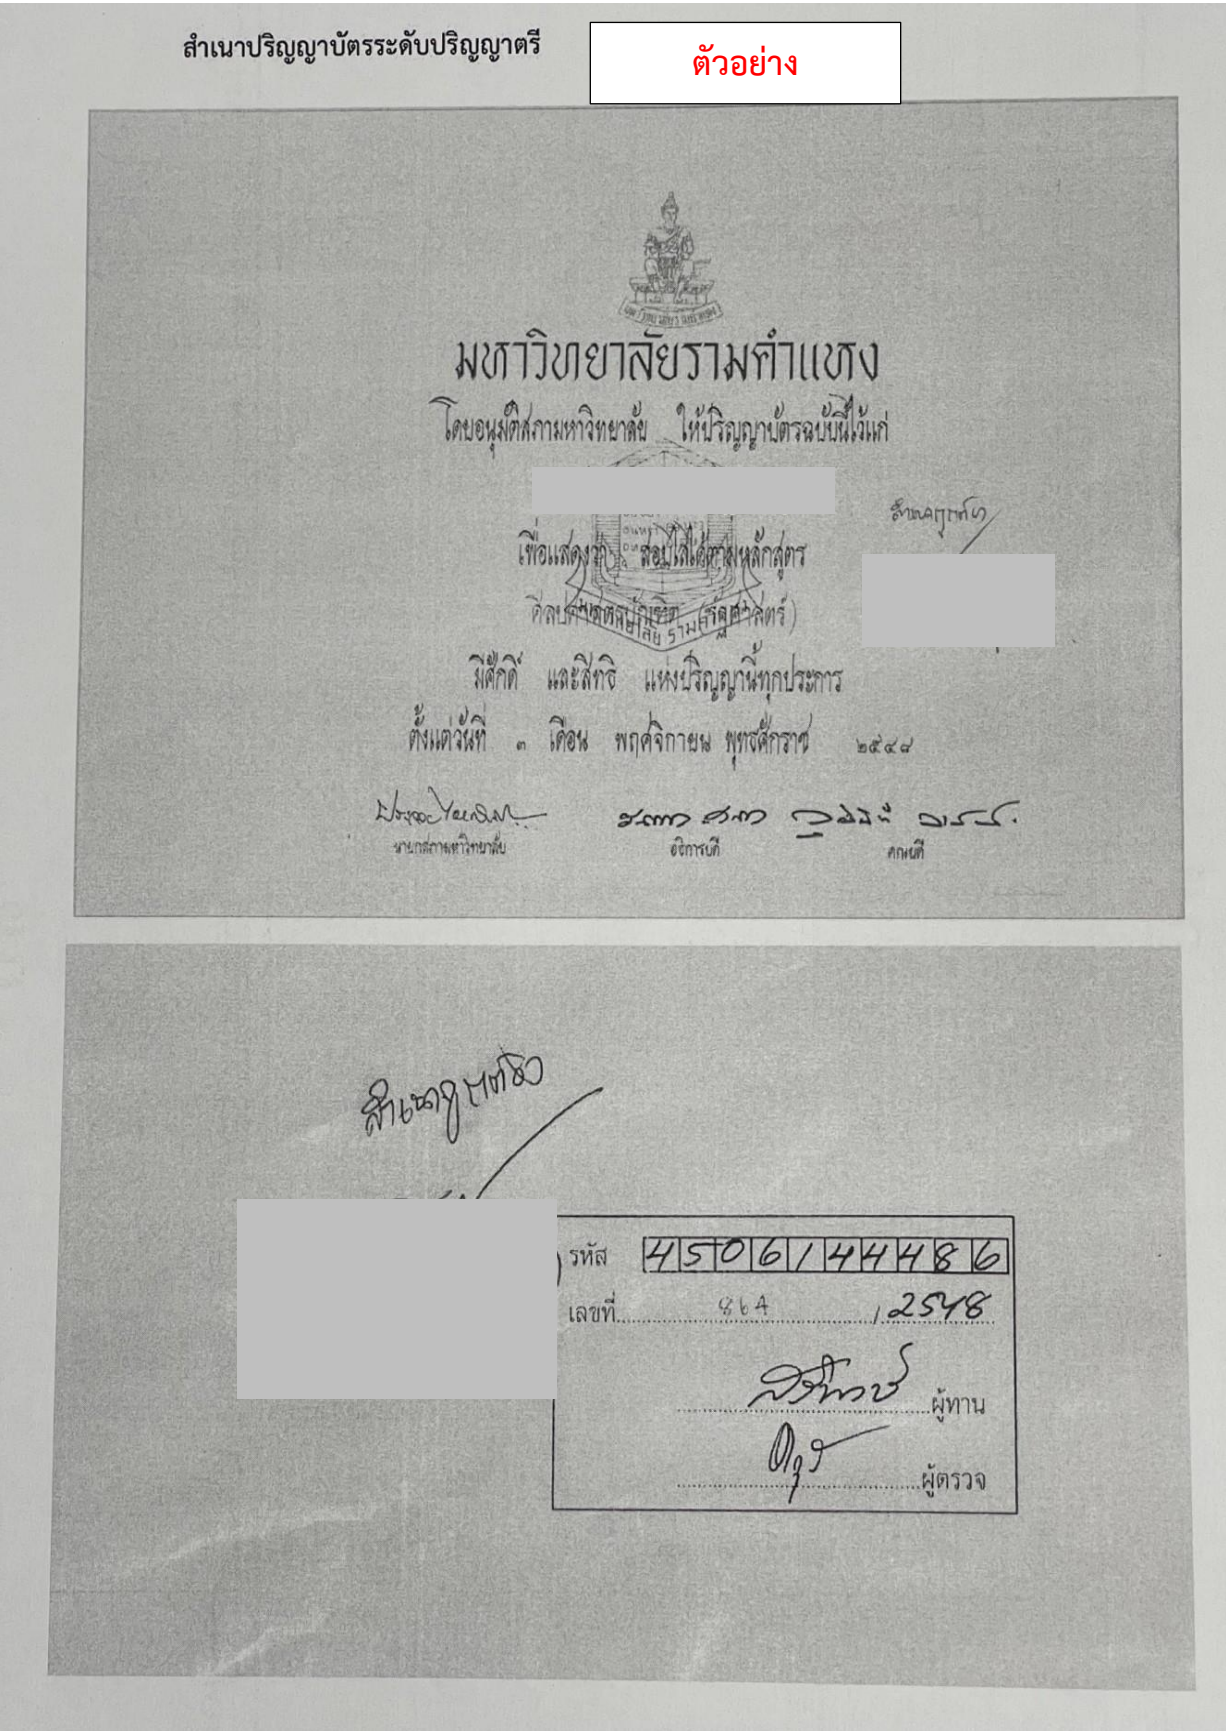 สำเนาปริญญาบัตรระดับปริญญาตรี
ตัวอย่าง
มหาวิทยาลัยรามคำแหง
โดยอนุมัติสภามหาวิทยาลัย ให้ปริญญาบัตรฉบับนี้ไว้แก่
สำเนาถูกต้อง
เพื่อแสดงว่า สอบไล่ได้ตามหลักสูตร
ศิลปศาสตรบัณฑิต (รัฐศาสตร์)
มีศักดิ์ และสิทธิ แห่งปริญญานี้ทุกประการ
ตั้งแต่วันที่ ๓ เดือน พฤศจิกายน พุทธศักราช ๒๕๔๘
นายกสภามหาวิทยาลัย อธิการบดี คณบดี
สำเนาถูกต้อง
รหัส 4506144486
เลขที่ 864 / 2548
ผู้ทาน
ผู้ตรวจ